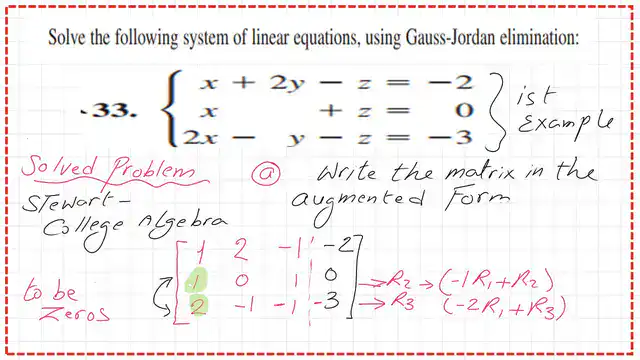 Solve the following system of linear equations, using Gauss-Jordan elimination:
33. { x + 2y − z = −2
x + z = 0
2x − y − z = −3
ist
Example
Solved Problem
Stewart-
College Algebra
ⓐ Write the matrix in the
augmented Form
1 2 -1 -2
1 0 1 0 → R2 → (-1R1+R2)
2 -1 -1 -3 → R3 (-2R1+R3)
to be
Zeros